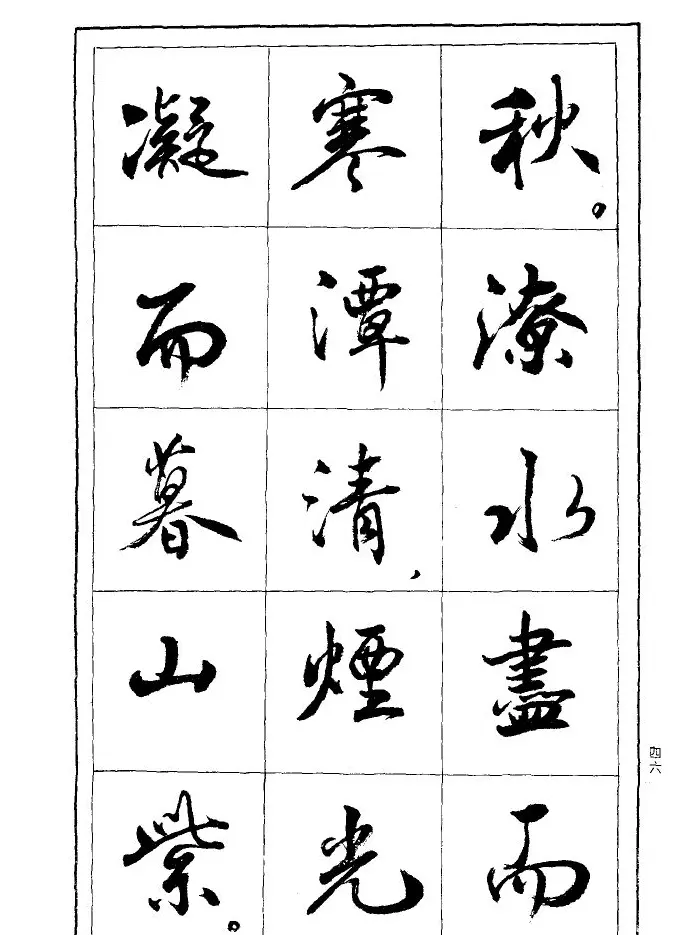 秋。潦水盡而
寒潭清，煙光
凝而暮山紫。
四六